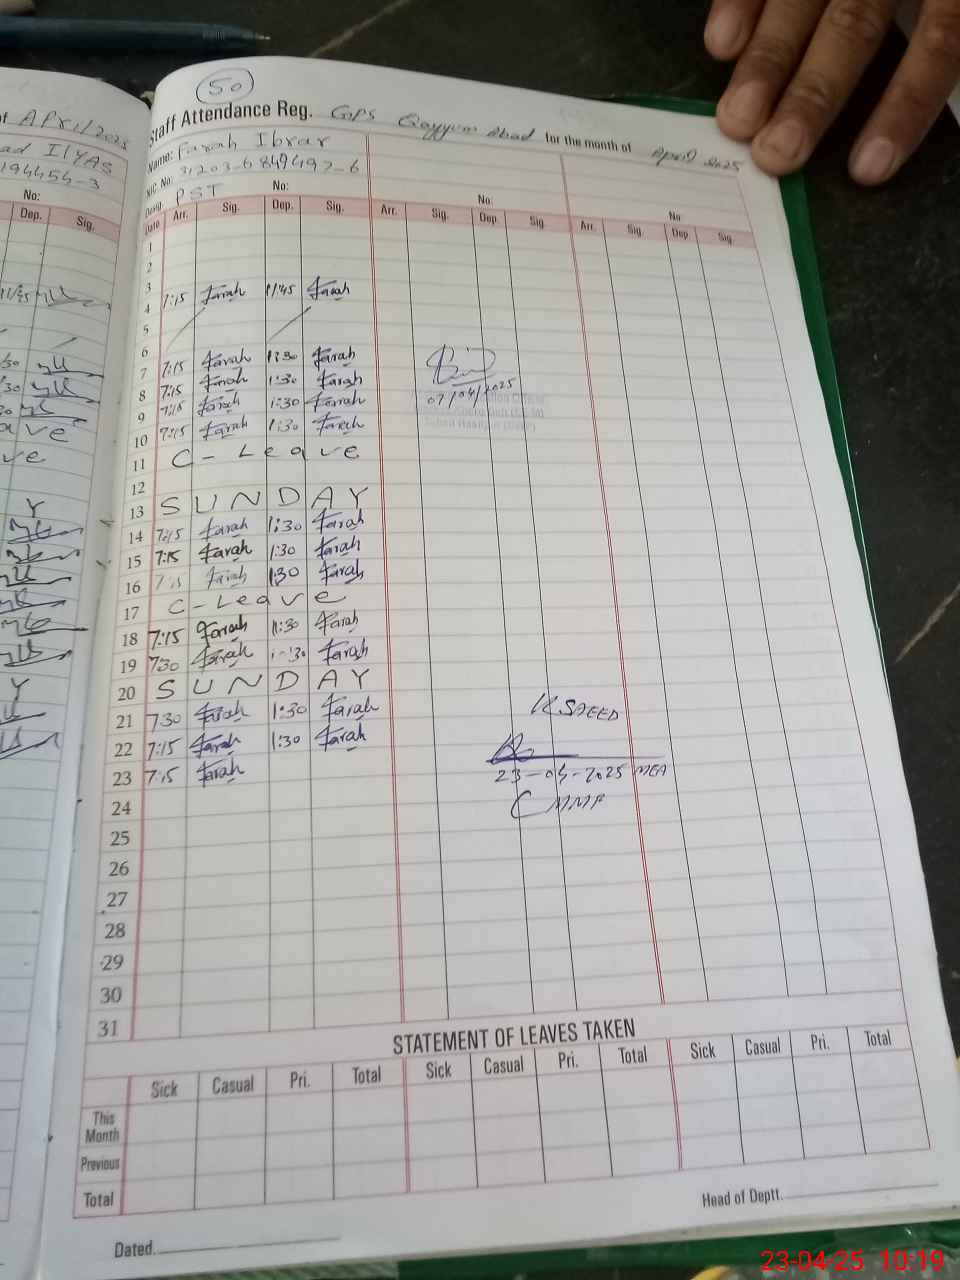 50
Staff Attendance Reg. GPS Qayyum Abad for the month of April 2025
Name: Farah Ibrar
NIC. No: 31203-6849497-6
Desig. PST No: No: No
Date Arr. Sig. Dep. Sig. Arr. Sig. Dep. Sig. Arr. Sig. Dep. Sig.
1
2
3
4 7:15 Farah 11/45 Farah
5
6
7 7:15 Farah 1:30 Farah
8 7:15 Farah 1:30 Farah
07/04/2025
9 7:15 Farah 1:30 Farah
10 7:15 Farah 1:30 Farah
11 C - Leave
12
13 SUNDAY
14 7:15 Farah 1:30 Farah
15 7:15 Farah 1:30 Farah
16 7:15 Farah 1:30 Farah
17 C - Leave
18 7:15 Farah 1:30 Farah
19 7:30 Farah 1:30 Farah
20 SUNDAY
21 7:30 Farah 1:30 Farah
K SAEED
22 7:15 Farah 1:30 Farah
23 7:15 Farah
23-04-2025 MEA
24
25
26
27
28
29
30
31
STATEMENT OF LEAVES TAKEN
Sick Casual Pri. Total Sick Casual Pri. Total Sick Casual Pri. Total
This Month
Previous
Total
Dated. Head of Deptt.
of April 2025
ad ILYAS
194454-3
No:
Dep. Sig.
11/45
23-04-25 10:19